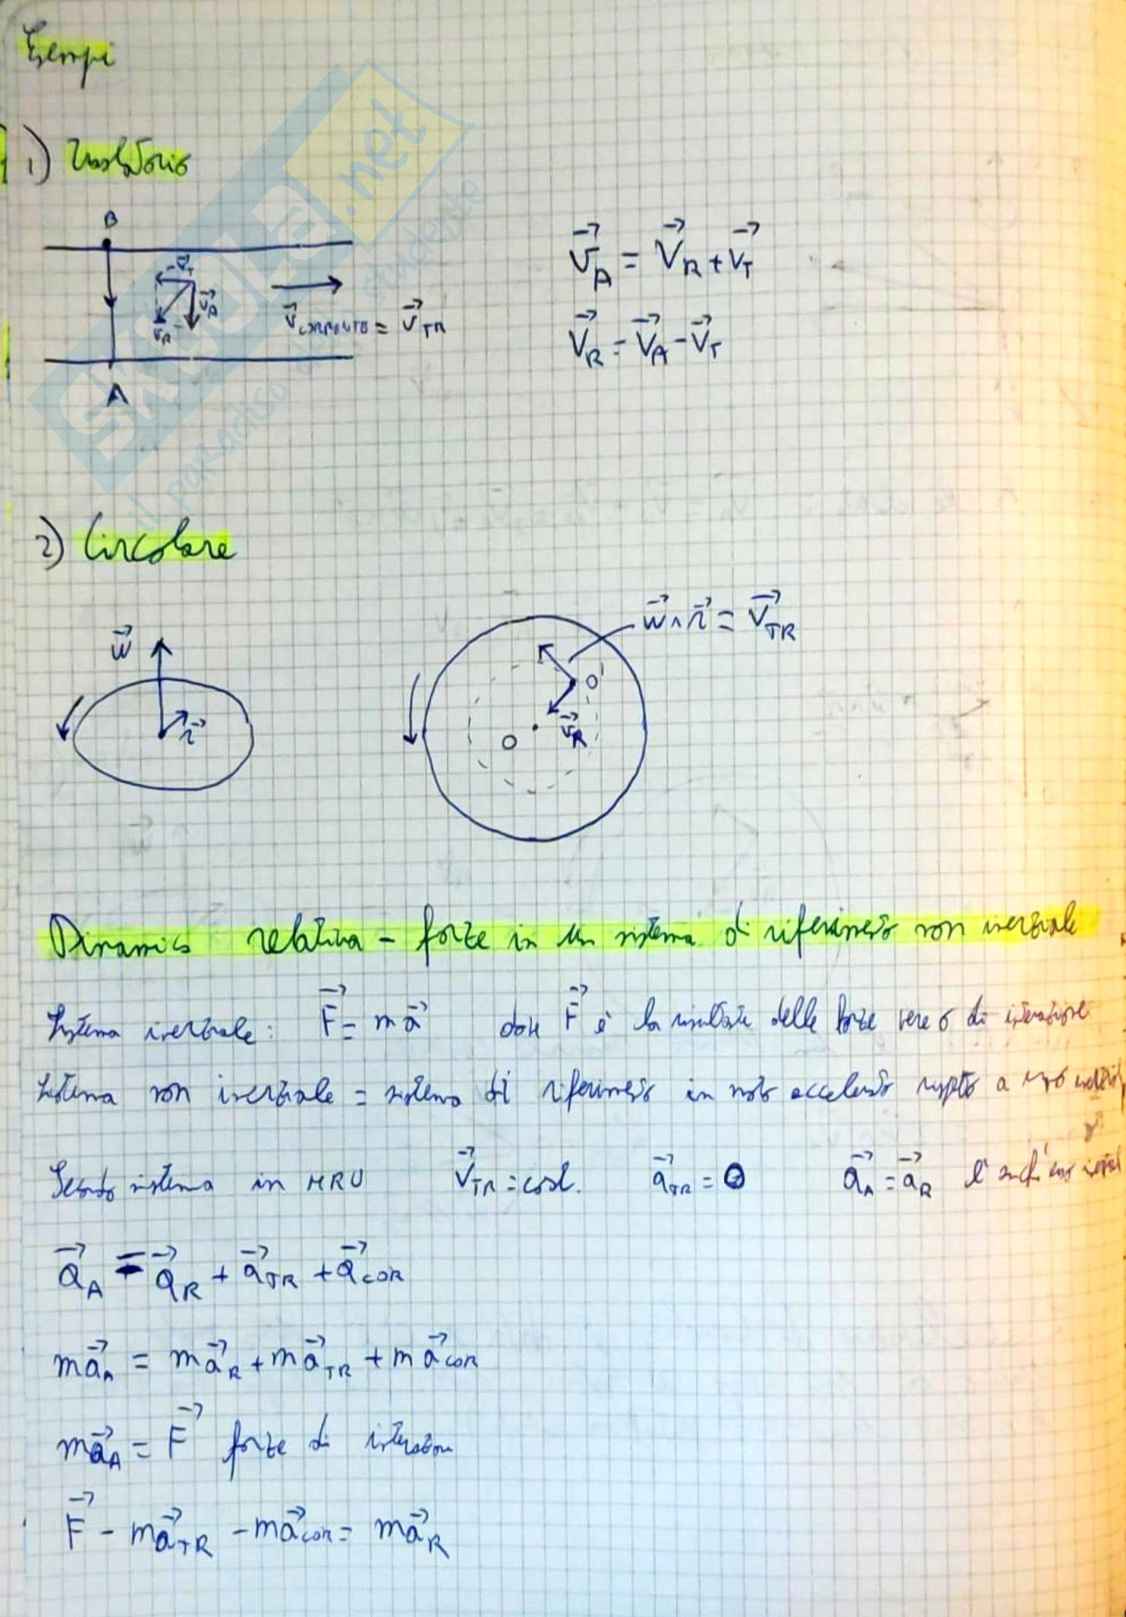 Esempi
1) Traslatorio
B
-v⃗_T
v⃗_A
v⃗_R
v⃗_corrente = v⃗_TR
A
v⃗_A = v⃗_R + v⃗_T
v⃗_R = v⃗_A - v⃗_T
2) Circolare
w⃗
r⃗
w⃗ ∧ r⃗ = v⃗_TR
O'
O
v⃗_R
Dinamica relativa - forze in un sistema di riferimento non inerziale
Sistema inerziale: F⃗ = m a⃗ dove F⃗ è la risultante delle forze vere o di interazione
Sistema non inerziale = sistema di riferimento in moto accelerato rispetto a uno inerziale
Secondo sistema in MRU v⃗_TR = cost. a⃗_TR = 0 a⃗_A = a⃗_R
a⃗_A = a⃗_R + a⃗_TR + a⃗_COR
m a⃗_A = m a⃗_R + m a⃗_TR + m a⃗_COR
m a⃗_A = F⃗ forze di interazione
F⃗ - m a⃗_TR - m a⃗_COR = m a⃗_R
skuola.net